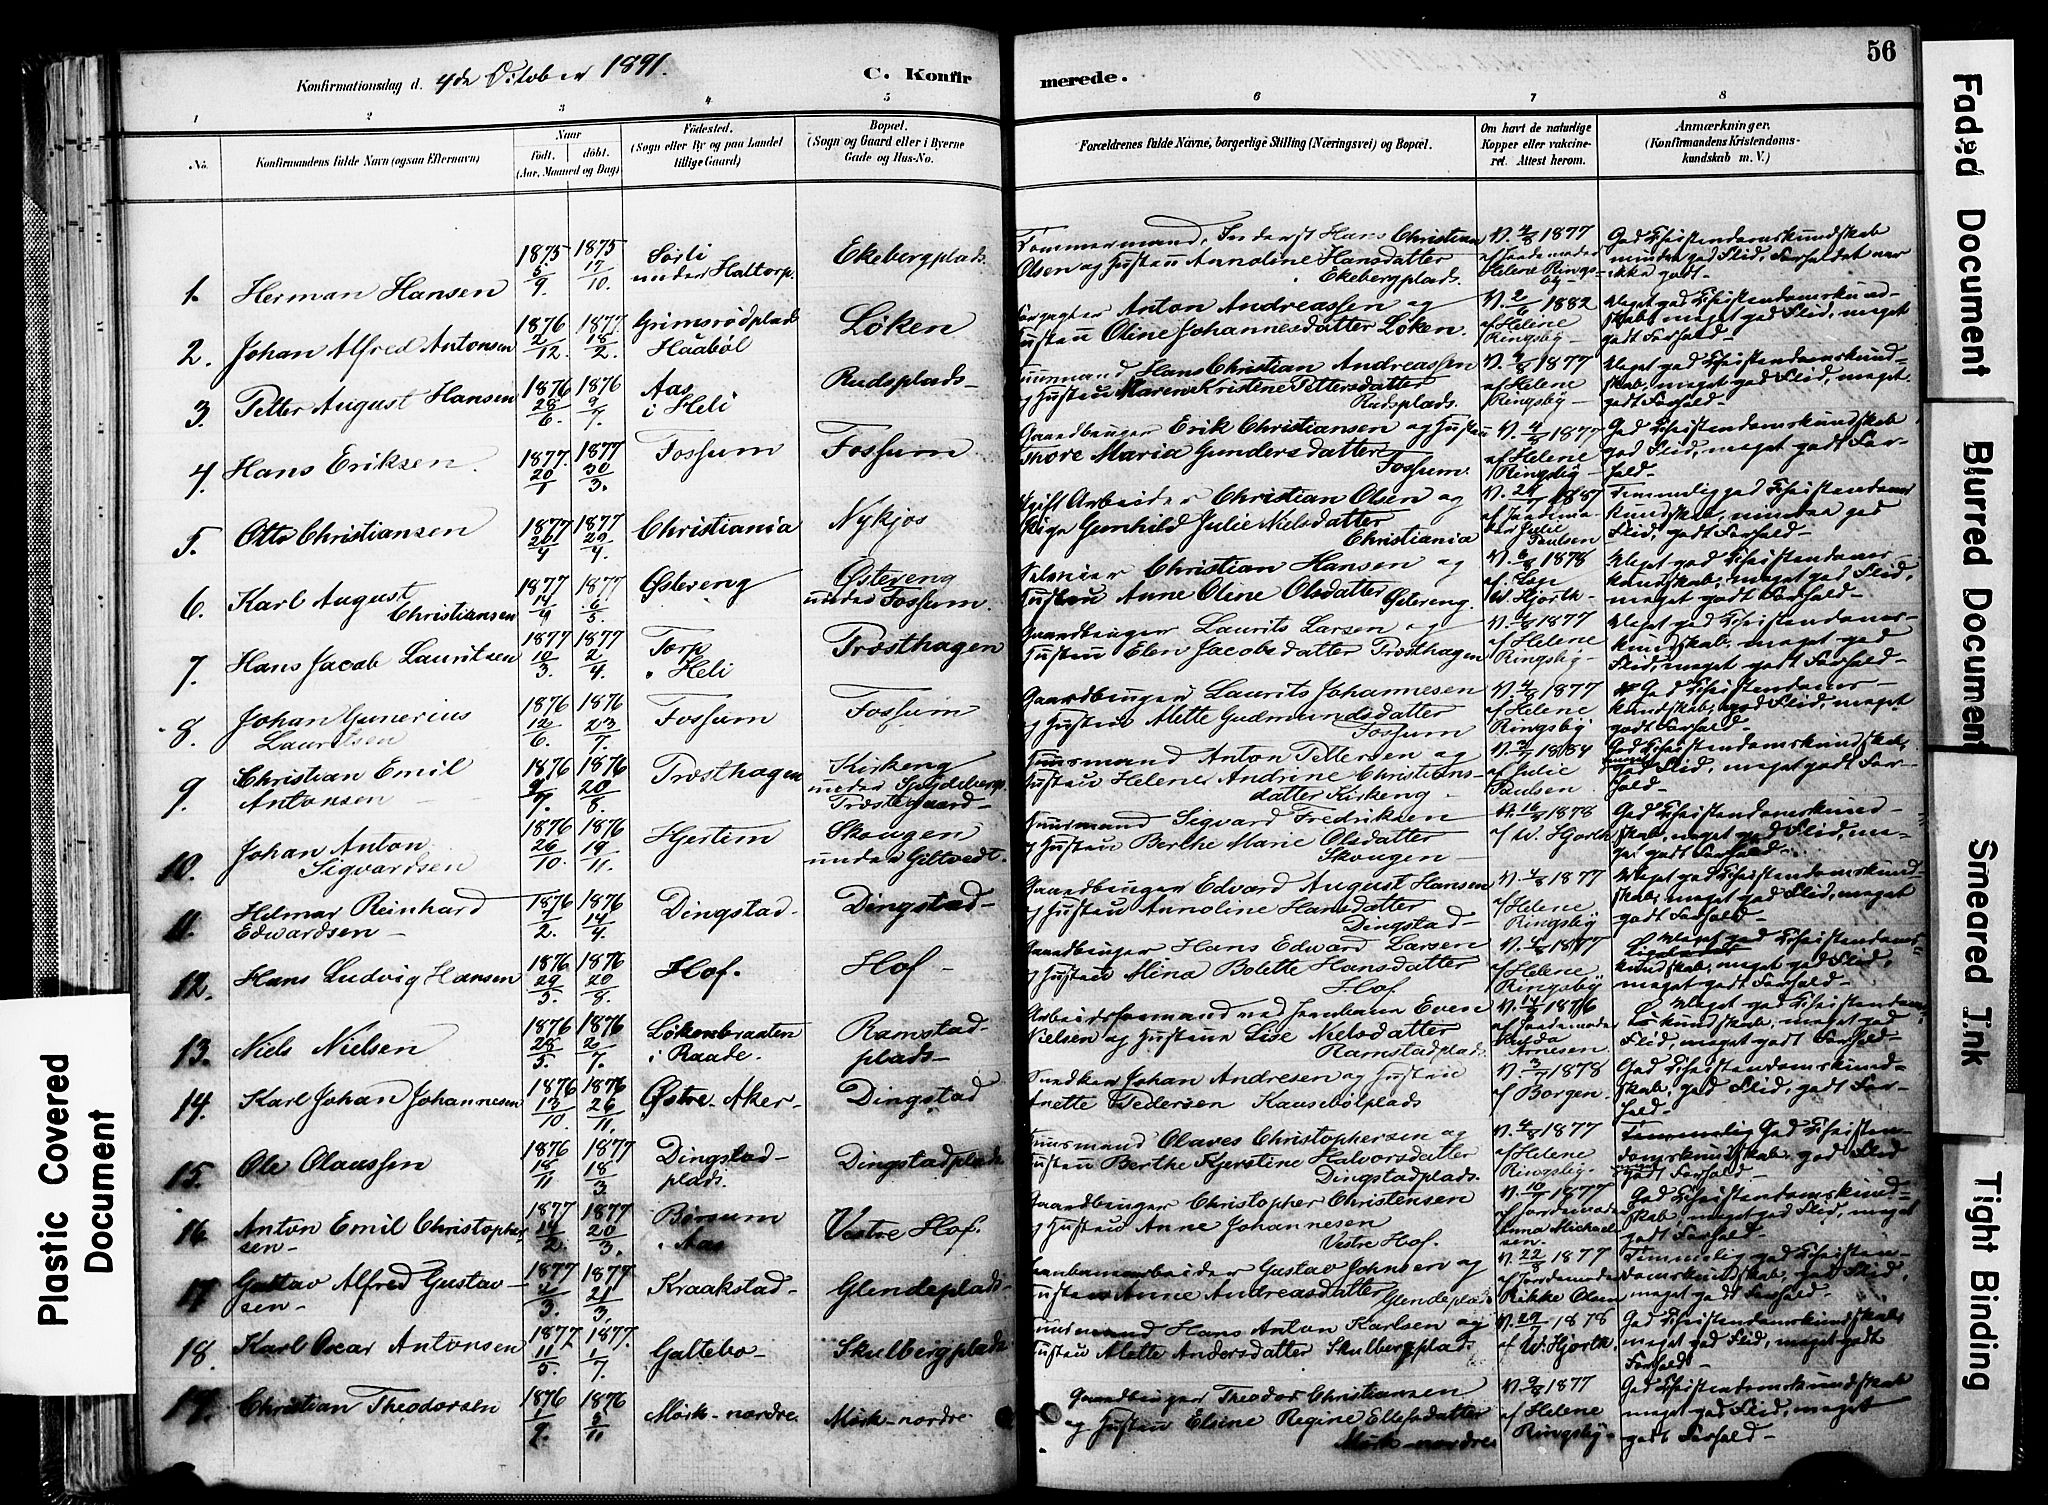 Konfirmationsdag d. 4de October 1891.
C. Konfirmerede.
56
1 2 3 4 5 6 7 8
No.
Konfirmandens fulde Navn (ogsaa Efternavn)
Naar
født. døbt.
(Aar, Maaned og Dag)
Fødested.
(Sogn eller By og paa Landet
tillige Gaard)
Bopæl.
(Sogn og Gaard eller i Byerne
Gade og Hus-No.
Forældrenes fulde Navne, borgerlige Stilling (Næringsvei) og Bopæl.
Om havt de naturlige
Kopper eller vakcine-
ret. Attest herom.
Anmærkninger.
(Konfirmandens Kristendoms-
kundskab m. V.)
1. Herman Hansen 1875 5/9. 1875 17/10. Sørli under Haltorp. Ekebergplads.
Tømmermand, Inderst Hans Christian
Olsen og Hustru Annoline Hansdatter
Ekebergplads.
V. 4/8 1877
af Jordemoder
Helene Ringsby
God Christendomskundskab
mindre god Flid, Forholdet var
ikke godt.
2. Johan Alfred Antonsen 1876 2/12. 1877. 18/2. Grimsrødplads Haabøl Løken
Anton Andreassen og
Hustru Oline Johannesdatter Løken.
V. 2/6 1882
af Helene
Ringsby
Meget god Christendomskund-
skab, meget god Flid, meget
godt Forhold
3. Petter August Hansen 1876 28/6. 1876 9/7. Aas i Heli Rudsplads
Huusmand Hans Christian Andreassen
og Hustru Maren Kristine Pettersdatter
Rudsplads.
V. 4/8 1877
af Helene
Ringsby
Meget god Christendomskund-
skab, meget god Flid, meget
godt Forhold
4. Hans Eriksen. 1877. 20/1 1877 30/3. Fossum Fossum
Gaardbruger Erik Christiansen og Hustru
Thore Maria Gundersdatter
Fossum.
V. 4/8 1877
af Helene
Ringsby
God Christendomskundskab
god Flid, meget godt For-
hold
5. Otto Christiansen 1877 26/4 1877 29/4. Christiania Nykjos
Ugift Arbeider Christian Olsen og
Pige Gunhild Julie Nielsdatter
Christiania
1887
af Jordemo-
der Julie
Paulsen
Temmelig god Christendoms
kundskab,
Flid, godt Forhold
6. Karl August Christiansen 1877 1877 6/5. Østereng Østereng under Fossum.
Selveier Christian Hansen og
Hustru Anne Oline Olsdatter
Østereng.
V. 6/8 1878
af Læge
W. Hjorth
Meget god Christendoms
kundskab, meget god Flid,
meget godt Forhold
7. Hans Jacob Lauritsen 1877 10/3. 1877 2/4. Torp i Heli Træsthagen
Gaardbruger Laurits Larsen og
Hustru Elen Jacobsdatter Træsthagen
1877
af Helene
Ringsby
Meget god Christendoms-
kundskab, meget god
Flid, meget godt Forhold
8. Johan Gunerius Lauritsen 1876 12/6. 1876 23/7. Fossum Fossum
Gaardbruger Laurits Johannesen
og Hustru Alette Gudmundsdatter
Fossum
V. 4/8 1877
af Helene
Ringsby
God Christendoms-
kundskab, god Flid, meget
godt Forhold
9. Christian Emil Antonsen 1876 1876 20/8. Træsthagen Kirkeng under Spydeberg Præstegaard
Huusmand Anton Pettersen og
Hustru Helene Andrine Christians-
datter Kirkeng
1884
af Julie
Paulsen
God Christendomskundskab,
god Flid, meget godt For-
hold
10. Johan Anton Sigvardsen 1876 26/10. 1876 19/11. Hjertim Skougen under Giltvedt.
Huusmand Sigvard Fredriksen
og Hustru Berthe Marie Olsdatter
Skougen
V. 16/8 1878
af W. Hjorth
God Christendomskund-
skab, meget god Flid, me-
get godt Forhold.
11. Helmar Reinhard Edwardsen 1876 7/2. 1876 14/4. Dingstad Dingstad
Gaardbruger Edvard August Hansen
og Hustru Annoline Hansdatter
Dingstad
V. 4/8 1877
af Helene
Ringsby
Meget god Christendomskund-
skab, meget god Flid, meget
godt Forhold
12. Hans Ludvig Hansen 1876 29/5. 1876 20/8. Hof. Hof
Gaardbruger Hans Edward Larsen
og Hustru Mina Bolette Hansdatter
Hof.
V. 4/8 1877
af Helene
Ringsby
Meget god Christendoms-
kundskab, meget god Flid,
meget godt Forhold
13. Niels Nielsen 1876 28/5. 1876 2/7. Løkenbraaten i Raade. Ramstadplads
Arbeidsformand ved Jernbanen Even
Nielsen og Hustru Lise Nielsdatter
Ramstadplads
1876
af Jordemoder
Hulda
Arnesen
Meget god Christendoms
kundskab, meget god
Flid, meget godt Forhold
14. Karl Johan Johannesen 1876 13/10. 1876 26/11. Østre Aker Dingstad
Snedker Johan Andresen og Hustru
Anette Pedersen Kausebølplads
1878
af Borgen.
God Christendomskund-
skab, god Flid, godt For-
hold
15. Ole Olaussen 1876 18/11 1877 18/3. Dingstadplads. Dingstadplads
Huusmand Olaves Christophersen og
Hustru Berthe Kjerstine Halvorsdatter
Dingstadplads.
V. 4/8 1877
af Helene
Ringsby
God Christen-
domskundskab, god Flid
godt Forhold
16. Anton Emil Christophersen 1877 14/2. 1877 20/3. Børsum i Aas Vestre Hof.
Gaardbruger Christopher Christensen
og Hustru Anne Johannesen
Vestre Hof.
1877
af Jordemoder
Anna Michael-
sen.
God Christendomskund-
skab, meget god Flid, meget
godt Forhold
17. Gustav Alfred Gustavsen 1877 1877 21/3. Kraakstad Glendeplads
Jernbanearbeider Gustav Johnsen og
Hustru Anne Andreasdatter
Glendeplads
V. 22/8 1877
af Jordemoder
Rikke Olsen
Temmelig god Christen-
domskundskab, god Flid,
meget godt Forhold.
18. Karl Oscar Antonsen 1877 11/5. 1877. 1/7. Galtebo Skulbergplads
Huusmand Hans Anton Karlsen og
Hustru Alette Andersdatter Skulbergplads
1878
af W. Hjorth.
God Christendomskundskab,
meget god Flid, meget godt
Forhold
19. Christian Theodorsen 1876 1/9. 1876 5/11 Mørk nordre Mørk nordre
Gaardbruger Theodor Christiansen
og Hustru Elsine Regine Ellefsdatter
Mørk nordre
1877
af Helene
Ringsby
God Christendomskundskab
meget god Flid, meget
godt Forhold
Plastic Covered
Document
Faded Document
Blurred Document
Smeared Ink
Tight Binding